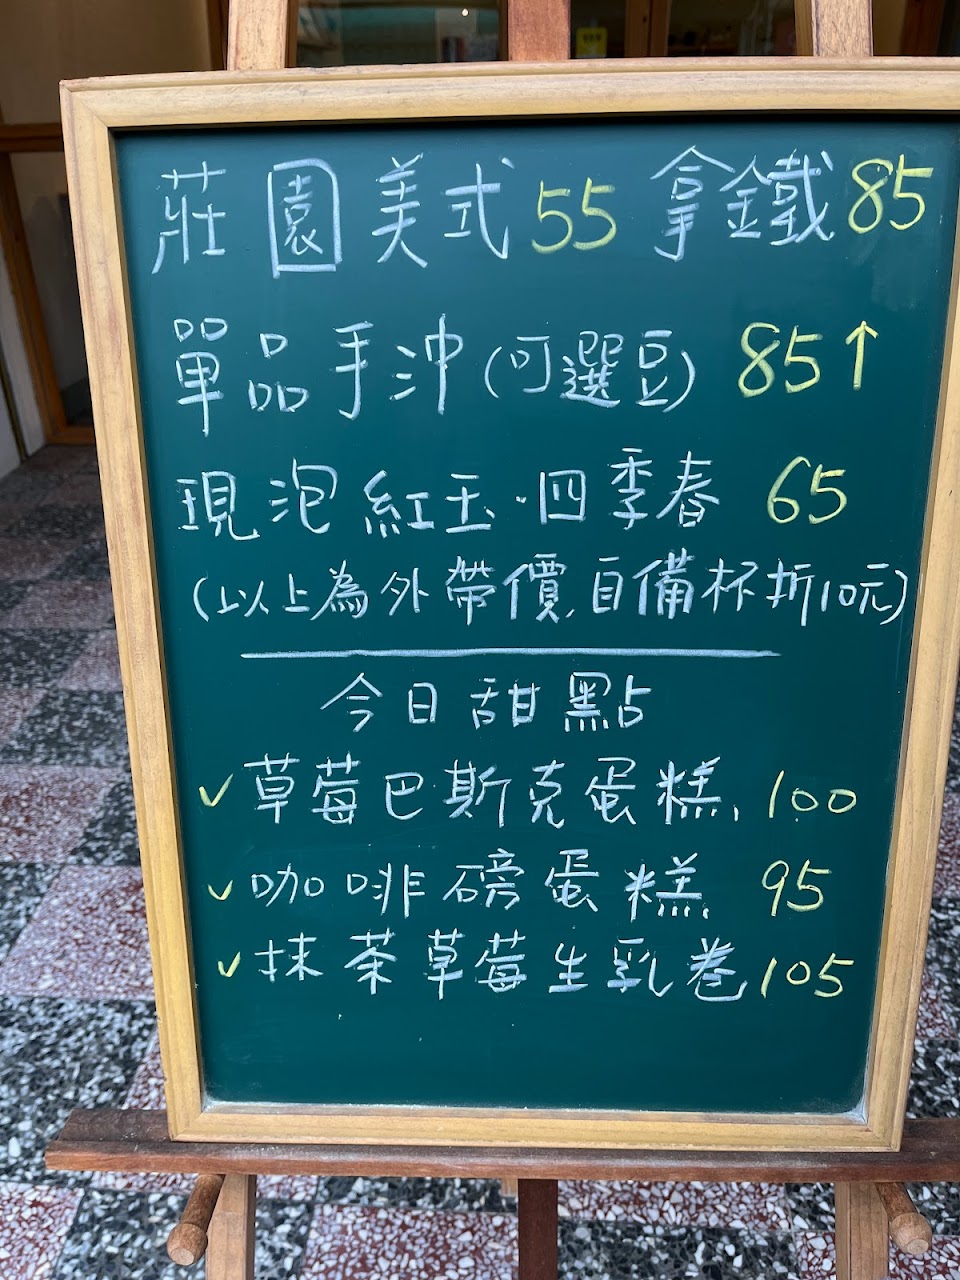 莊園美式 55 拿鐵 85
單品手沖(可選豆) 85↑
現泡紅玉·四季春 65
(以上為外帶價,自備杯折10元)
今日甜點
✓草莓巴斯克蛋糕. 100
✓咖啡磅蛋糕. 95
✓抹茶草莓生乳卷 105